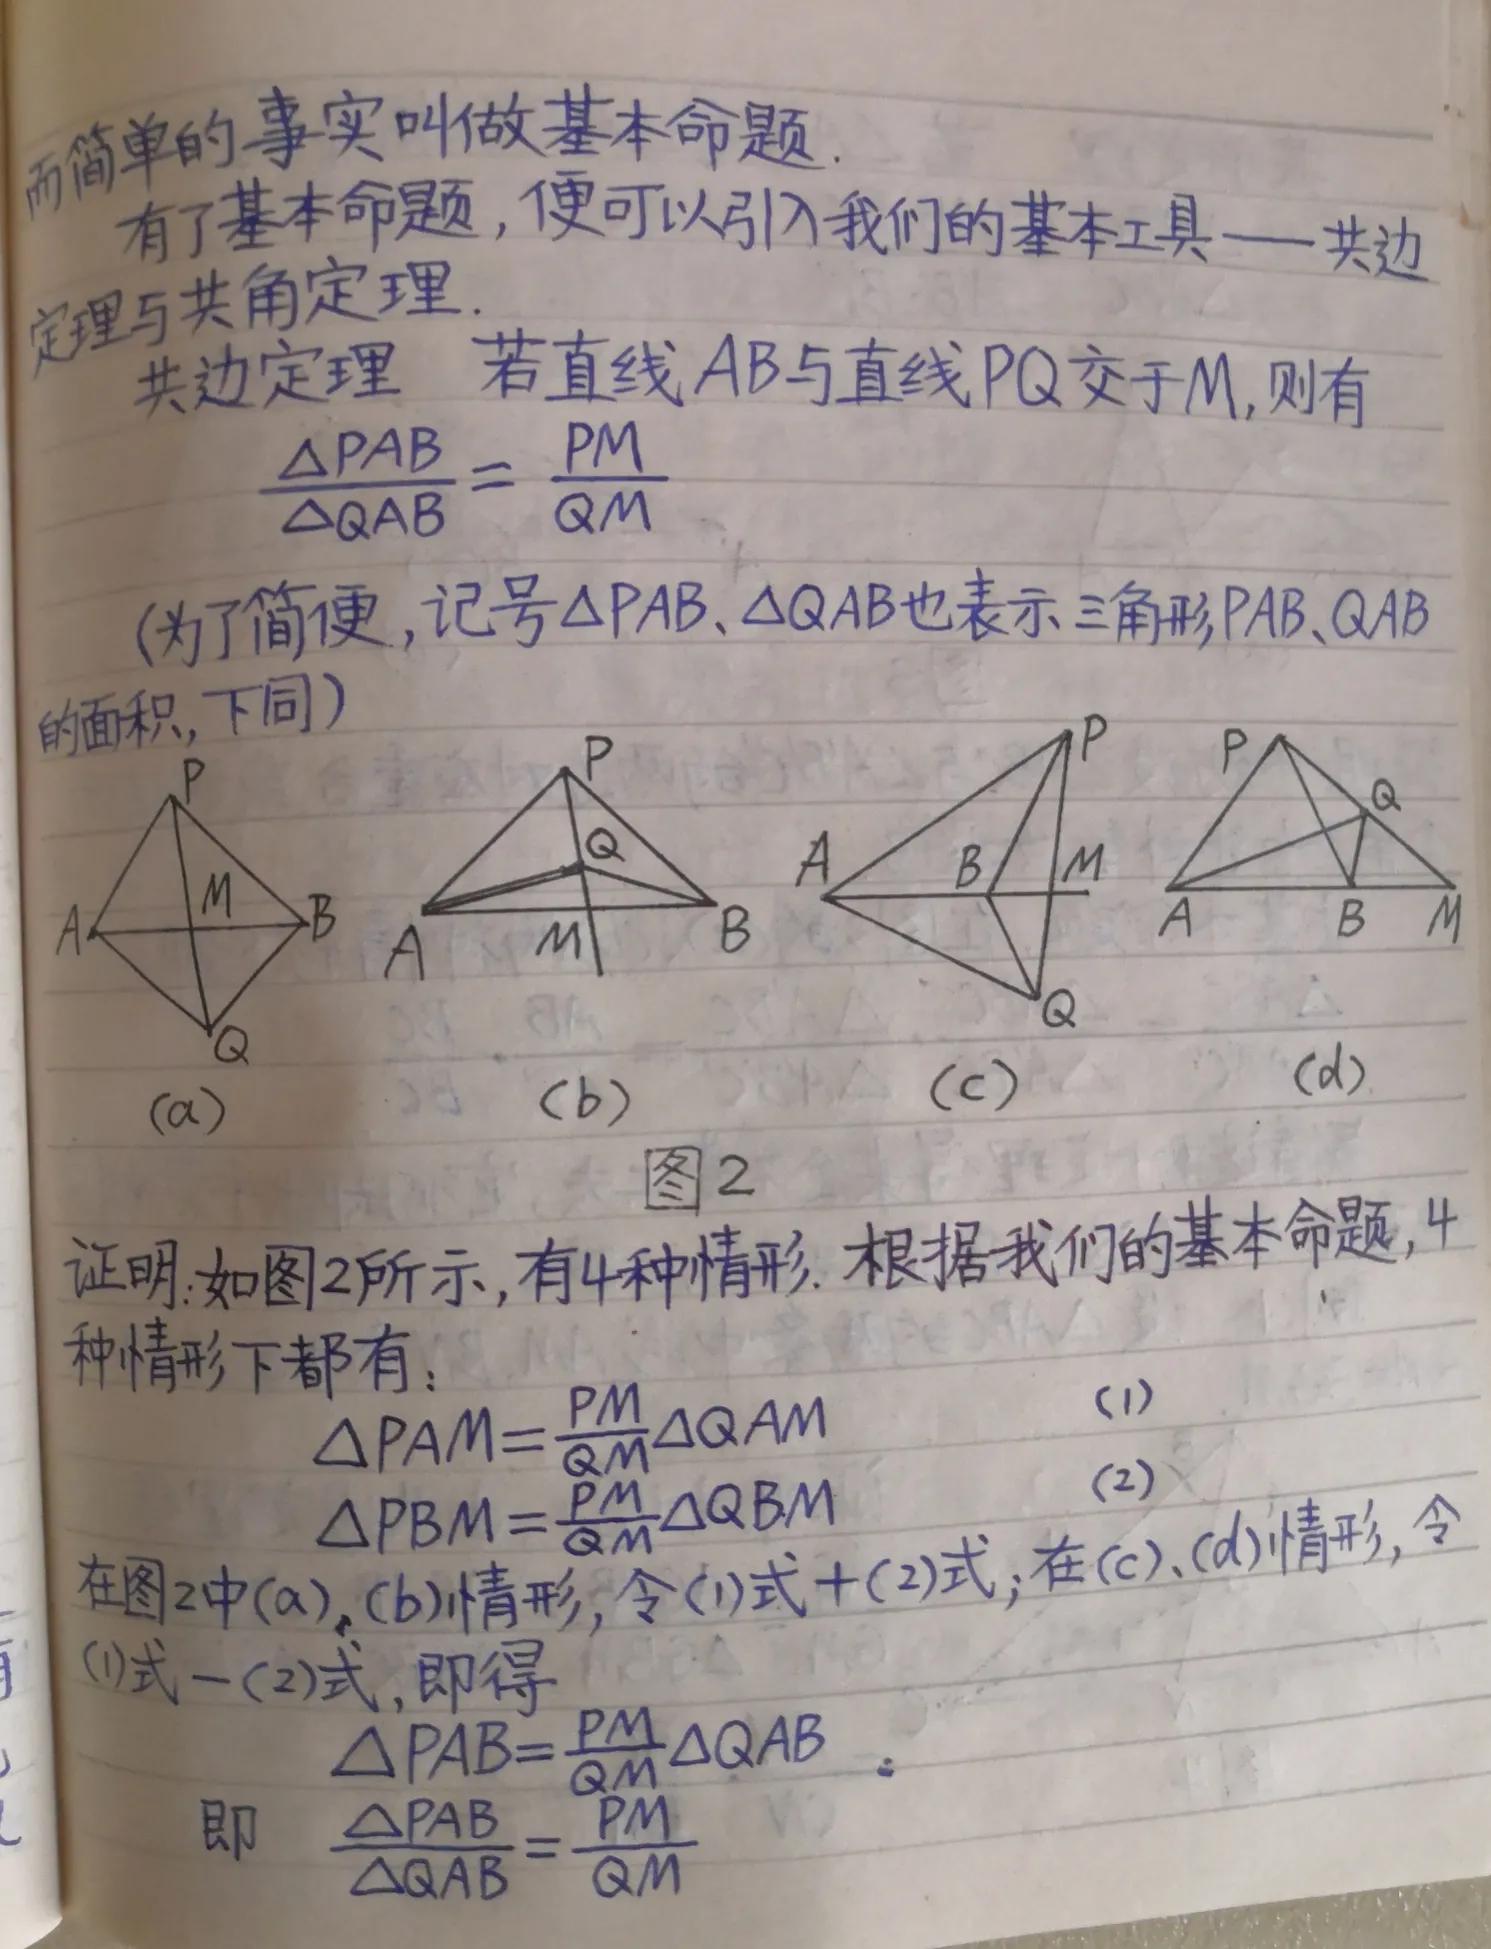 而简单的事实叫做基本命题.
有了基本命题,便可以引入我们的基本工具——共边
定理与共角定理.
共边定理 若直线AB与直线PQ交于M,则有
△PAB/△QAB = PM/QM
(为了简便,记号△PAB、△QAB也表示三角形PAB、QAB
的面积,下同)
P A M B Q
P Q A M B
P A B M Q
P Q A B M
(a) (b) (c) (d)
图2
证明:如图2所示,有4种情形.根据我们的基本命题,4
种情形下都有:
△PAM=PM/QM△QAM (1)
△PBM=PM/QM△QBM (2)
在图2中(a)、(b)情形,令(1)式+(2)式;在(c)、(d)情形,令
(1)式-(2)式,即得
△PAB=PM/QM△QAB.
即 △PAB/△QAB=PM/QM